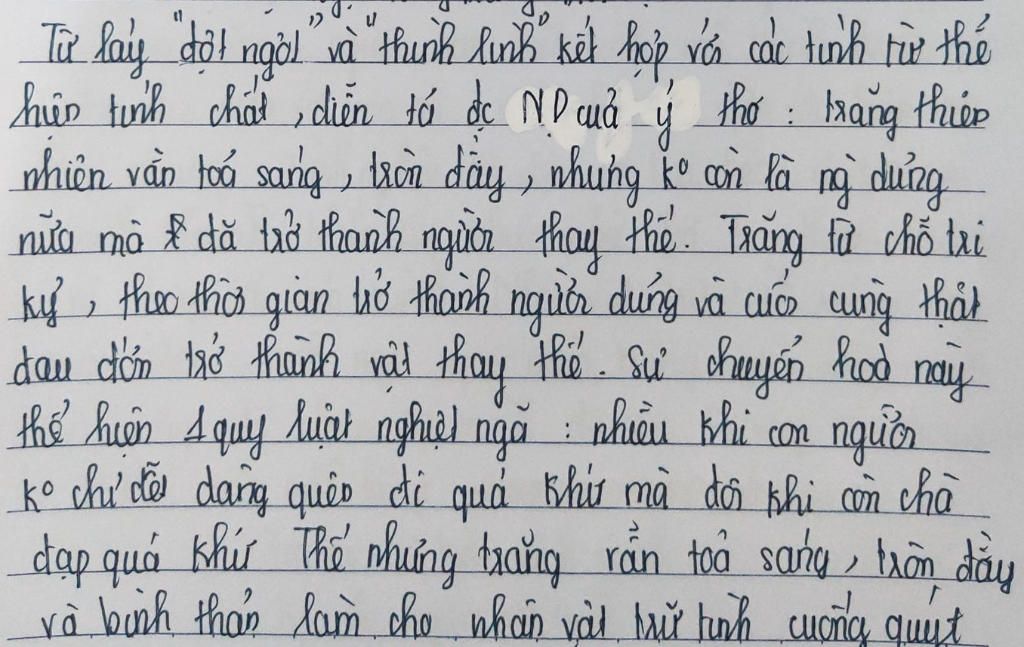 Từ láy "đột ngột" và "thình lình" kết hợp với các tính từ thể
hiện tính chất, diễn tả đc ND của ý thơ : trăng thiên
nhiên vẫn toả sáng, tròn đầy, nhưng ko còn là ng dưng
nữa mà đã trở thành người thay thế. Trăng từ chỗ tri
kỷ, theo thời gian trở thành người dưng và cuối cùng thật
đau đớn trở thành vật thay thế. Sự chuyển hoá này
thể hiện 1 quy luật nghiệt ngã : nhiều khi con người
ko chỉ dễ dàng quên đi quá khứ mà đôi khi còn chà
đạp quá khứ Thế nhưng trăng vẫn toả sáng, tròn đầy
và bình thản làm cho nhân vật trữ tình cuống quýt